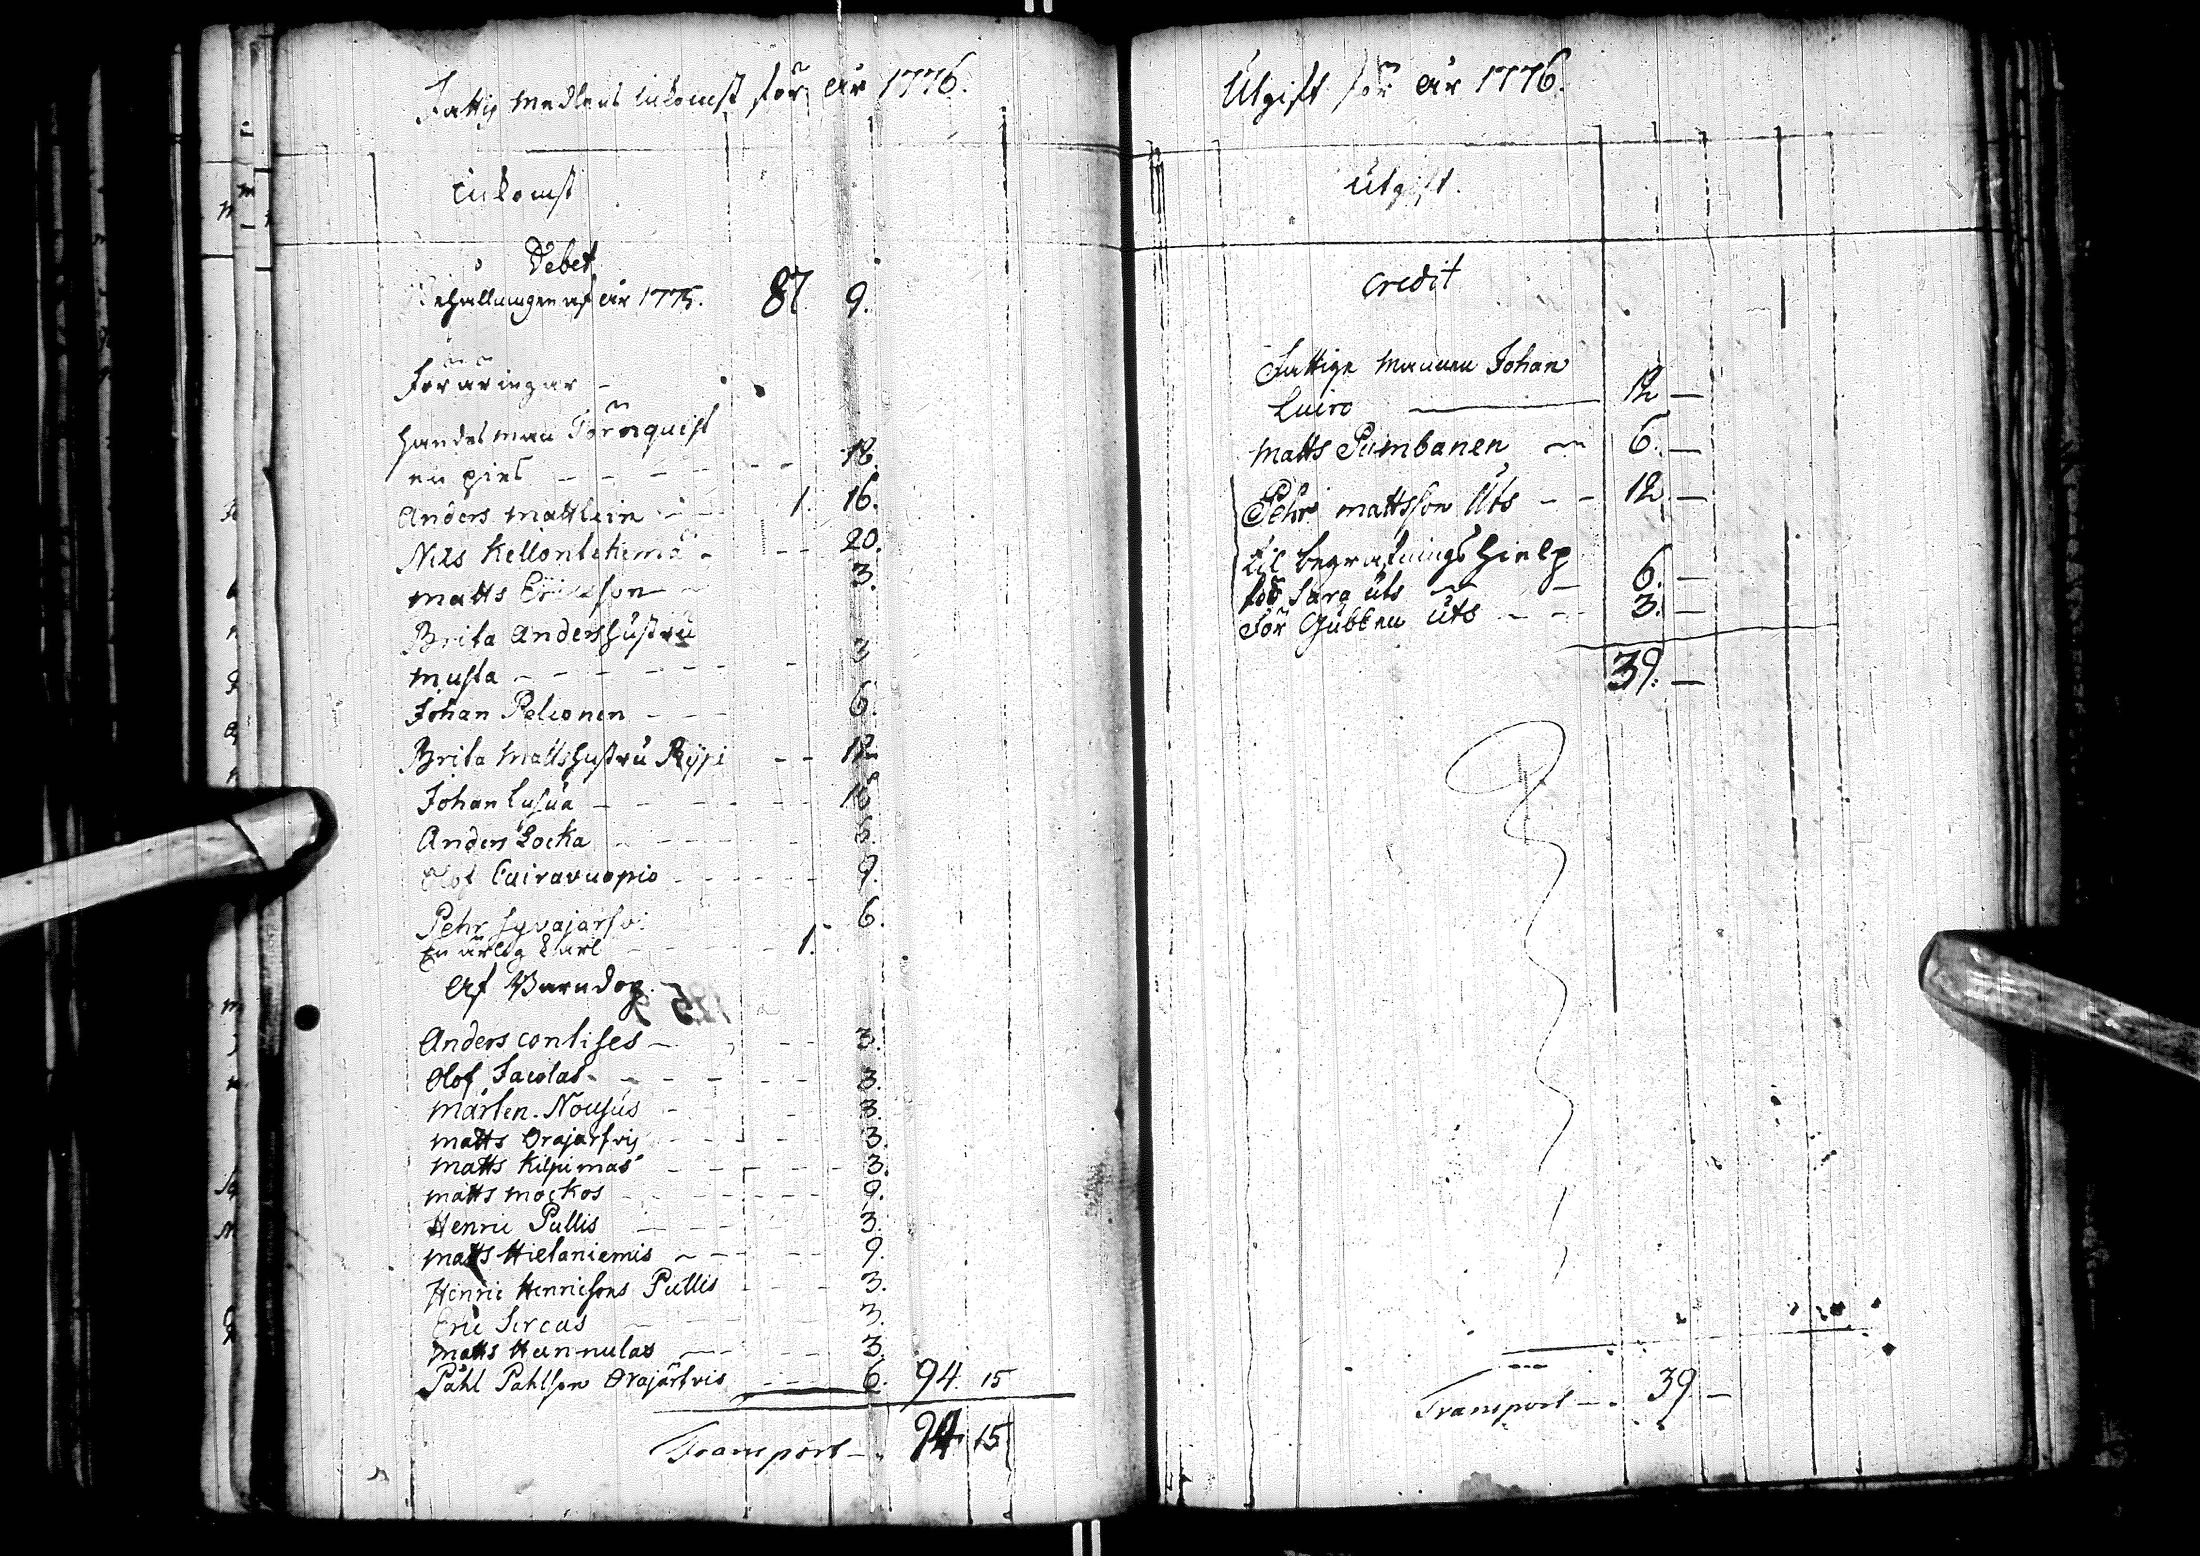 Fattig medlens inkomst för år 1776.
inkomst
Debet
Behållningen af år 1775. 87 9.
Föräringar -
Handelsman Törnquist
en pies - - - - - 18.
Anders mattlein - - 1. 16.
Nils Kellontekemä - - - 20.
matts Ericsson - 3.
Brita Andershustru
musta - - - - - - 3
Johan Pelconen - - - 6.
Brita Mattshustru Rypi - - 12
Johan Lusua - - - - - 18
Anders Locka - - - - 6.
Olof Cairavuopio - - - - 9.
Pehr Syväjärfvi 6.
En ärlig karl - - - - 1.
Af Barndop.
Anders contises - - - 3.
Olof Jacolas - - - - - 3.
mårten Nousus - - 3.
matts Orajarfvis - - - 3.
matts Kilpimas - - - - - 3.
matts mockos - - - - - 9.
Henric Pullis - - - - 3.
matts Hietaniemis - - - - 9.
Henric Henricsons Pullis - - - 3.
Eric Sircas - - - 3.
matts Hannulas - - - 3.
Påhl Påhlson Orajärfvis - - - 6. 94. 15
Transport - . 94 15
Utgift för år 1776.
Utgift.
Credit
Fattige mannen Johan
Luiro — 12 —
matts Pumbanen — 6. —
Pehr mattsson Uts - - 12 —
til begrafnings hielp
för Sara Uts — - 6. —
för Gubben Uts - - - 3. —
39. —
Transport - . 39 —